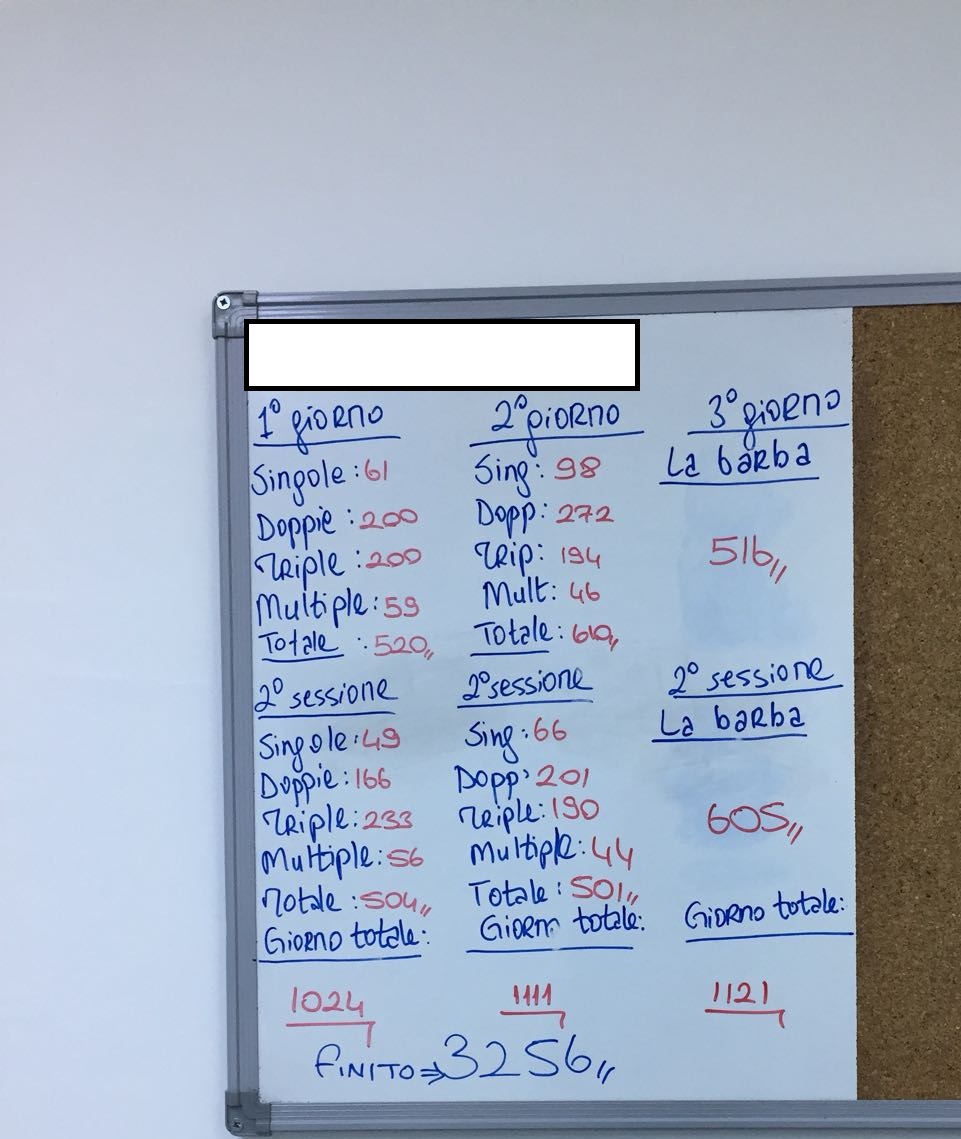 1° giorno
Singole: 61
Doppie: 200
Triple: 200
Multiple: 59
Totale: 520,,
2° sessione
Singole: 49
Doppie: 166
Triple: 233
Multiple: 56
Totale: 504,,
Giorno totale:
1024
2° giorno
Sing: 98
Dopp: 272
Trip: 194
Mult: 46
Totale: 610,,
2° sessione
Sing: 66
Dopp: 201
Triple: 190
Multiple: 44
Totale: 501,,
Giorno totale:
1111
3° giorno
La barba
516,,
2° sessione
La barba
605,,
Giorno totale:
1121
Finito ⇒ 3256,,